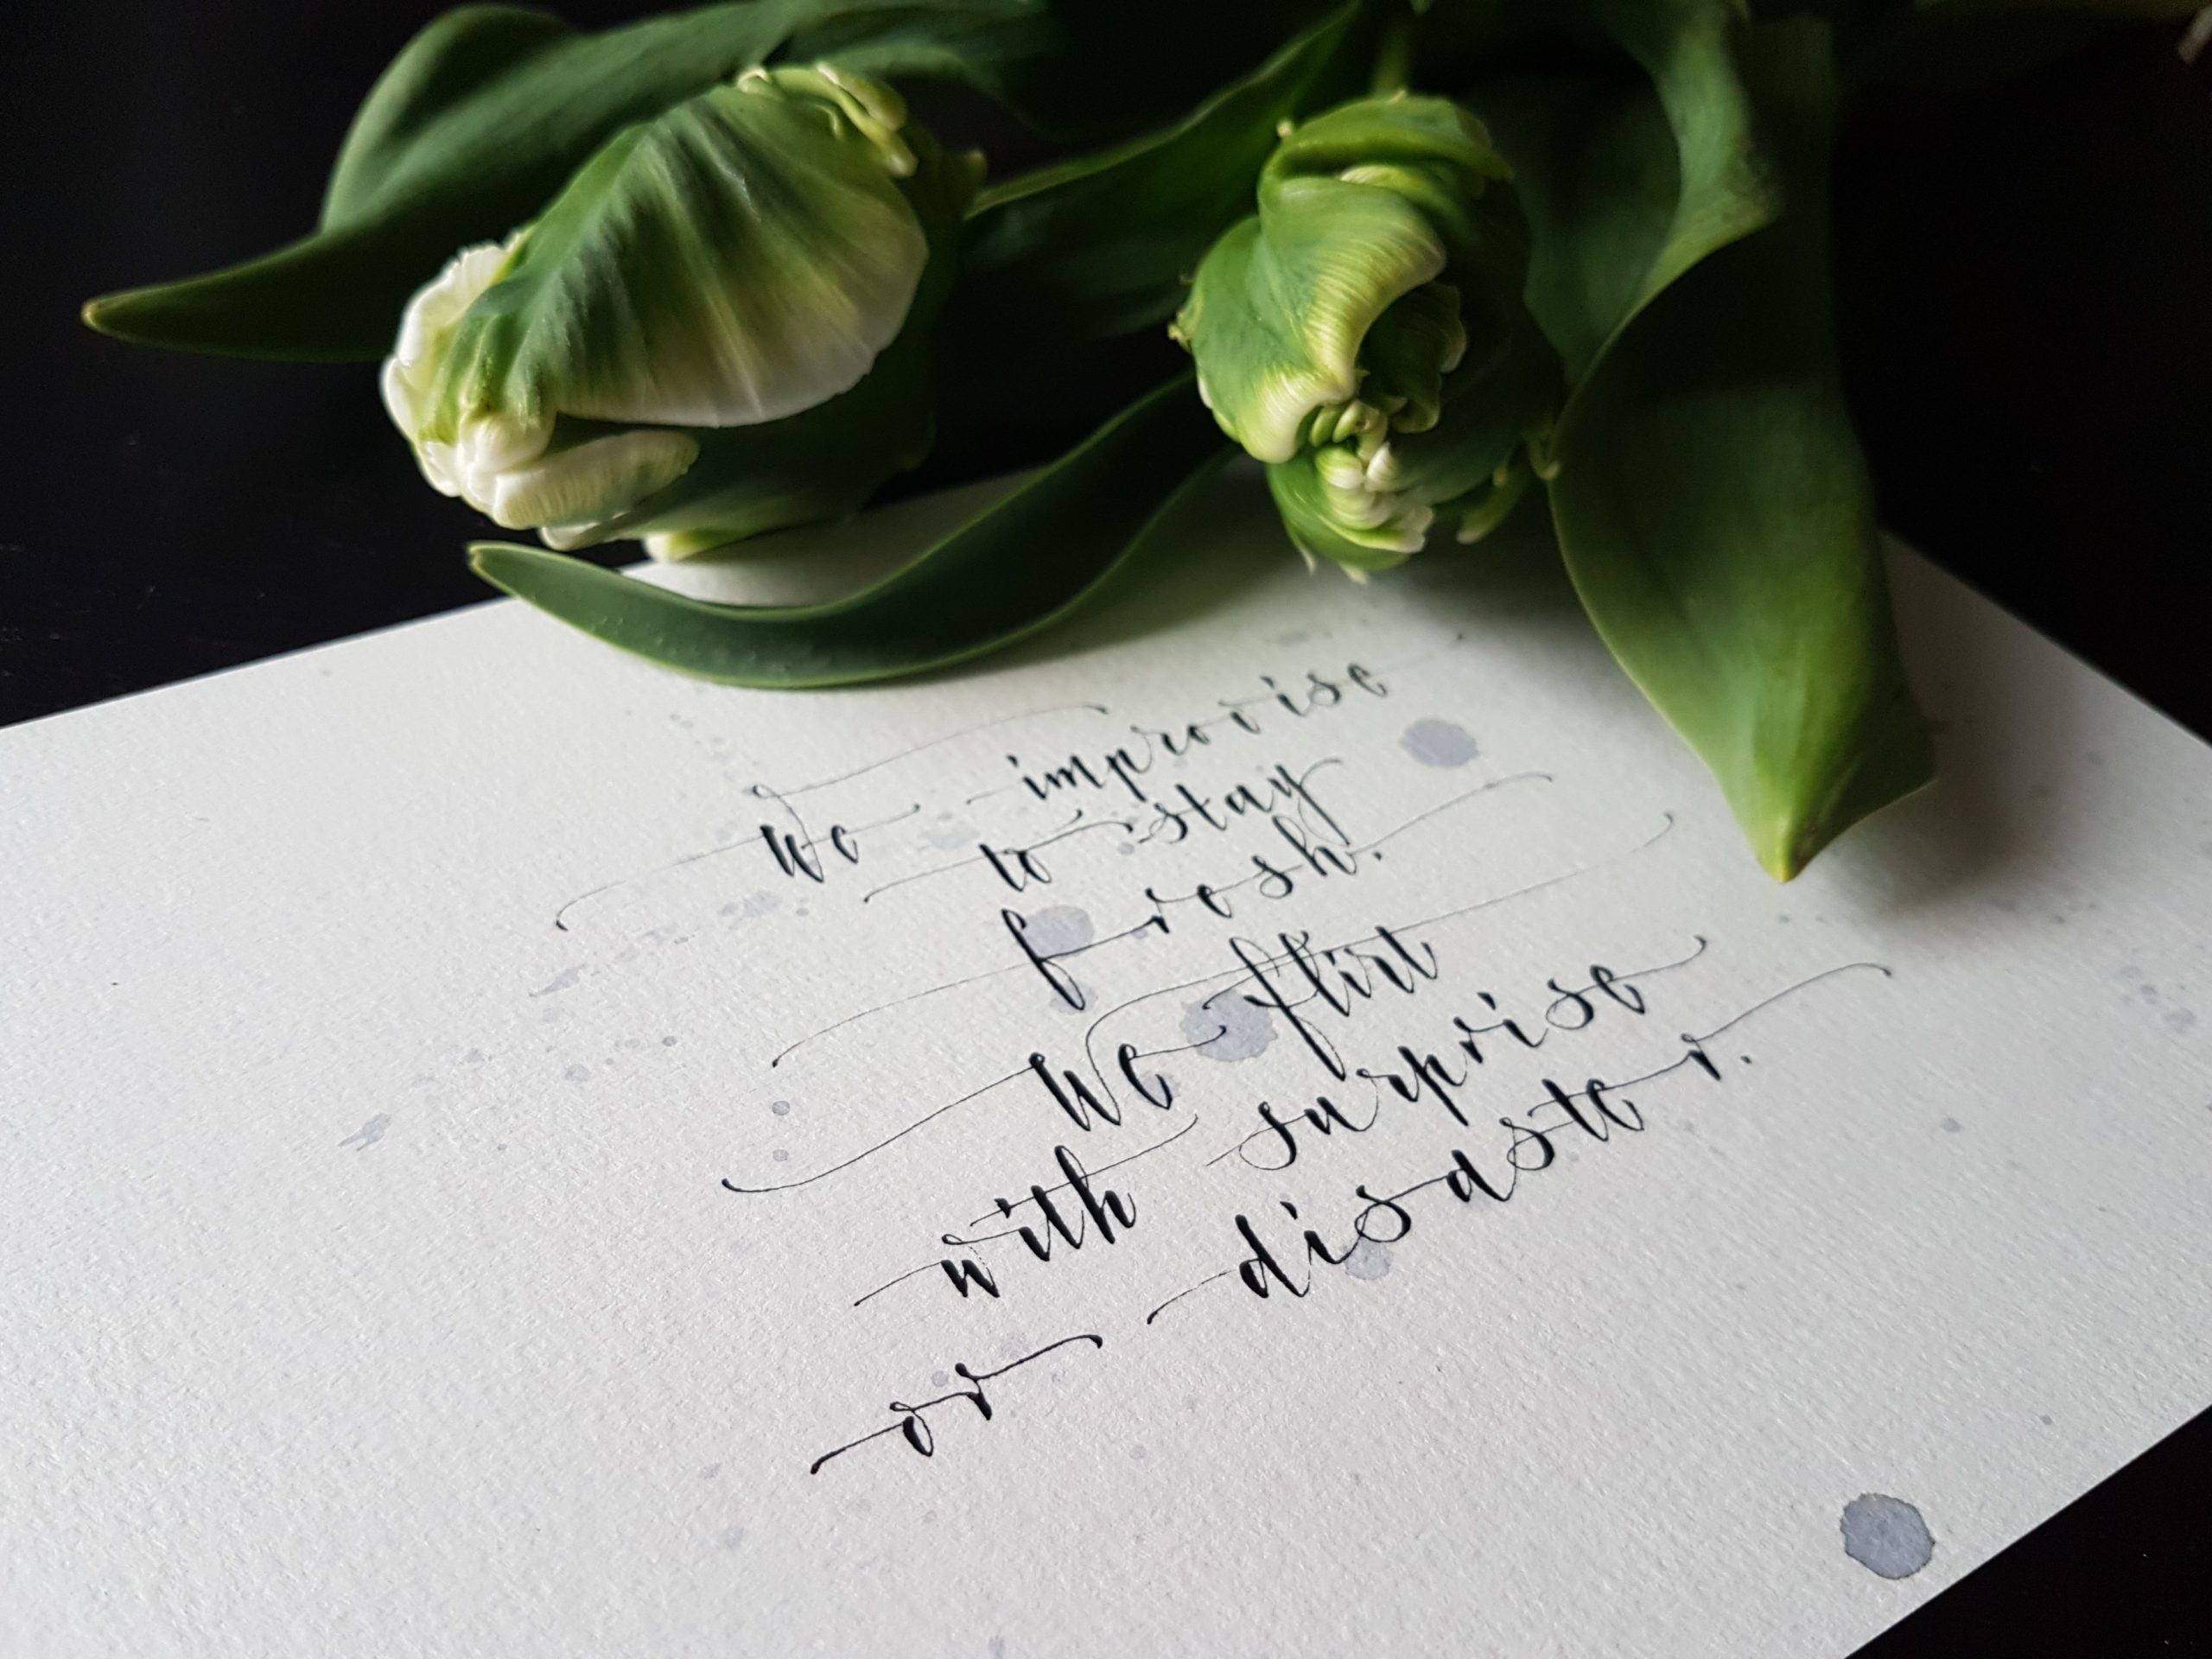 We improvise
to stay
fresh.
We flirt
with surprise
or disaster.